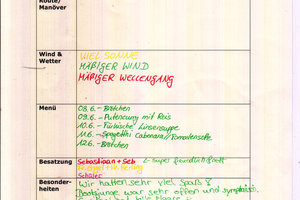 Route/
Manöver
Wind &
Wetter
VIEL SONNE
MÄßIGER WIND
MÄßIGER WELLENGANG
Menü
08.6.-Brötchen
09.6.-Putencurry mit Reis
10.6.-Türkische Linsensuppe
11.6.-Spagetthi Cabonara/Tomatensoße
12.6.-Brötchen
Besatzung
Sebastiaan + Seb
super freundlich
Schüler
Besonder-
heiten
Wir hatten sehr viel Spaß
war sehr offen und symphatisch